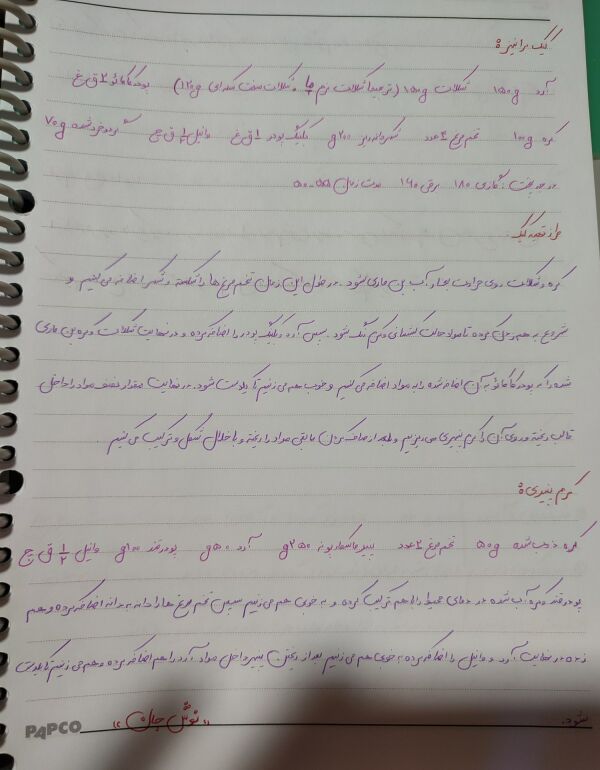 کیک براونیز:
آرد 150g شکلات 150g (ترجیحا شکلات نرم و شکلات سفت شکری 120g) پودر کاکائو 2 ق غ
کره 100g تخم مرغ 3 عدد شکر دانه ریز 200g بکینگ پودر 1 ق غ وانیل 1/2 ق چ گردو خرد شده 70g
درجه پخت: گازی 180 برقی 160 مدت زمان 55-50
طرز تهیه کیک:
کره و شکلات روی حرارت بخار آب بن ماری شود. در طول این زمان تخم مرغ ها را شکسته و شکر اضافه می کنیم و
شروع به هم زدن کرده تا مواد حالت کشدار و کرم رنگ شود. سپس آرد و بکینگ پودر را اضافه کرده و در نهایت شکلات و کره بن ماری
شده را که پودر کاکائو به آن اضافه شده را به مواد اضافه می کنیم و خوب هم می زنیم تا یکدست شود. در نهایت مقدار نصف مواد را داخل
قالب ریخته و روی آن را کرم پنیری می ریزیم و بعد از صاف کردن مابقی مواد را ریخته و با خلال شکل و ترکیب می کنیم.
کرم پنیری:
کره ذوب شده 50g تخم مرغ 2 عدد پنیر ماسکارپونه 350g آرد 50g پودر قند 100g وانیل 1/2 ق چ
پودر قند و کره آب شده در دمای محیط را باهم ترکیب کرده و به خوبی هم می زنیم سپس تخم مرغ ها را دانه به دانه اضافه کرده و هم
زده در نهایت آرد و وانیل را اضافه کرده به خوبی هم می زنیم بعد از ریختن پنیر داخل مواد آرد را هم اضافه کرده و هم می زنیم تا یکدست
شود.
"نوش جان"
PAPCO